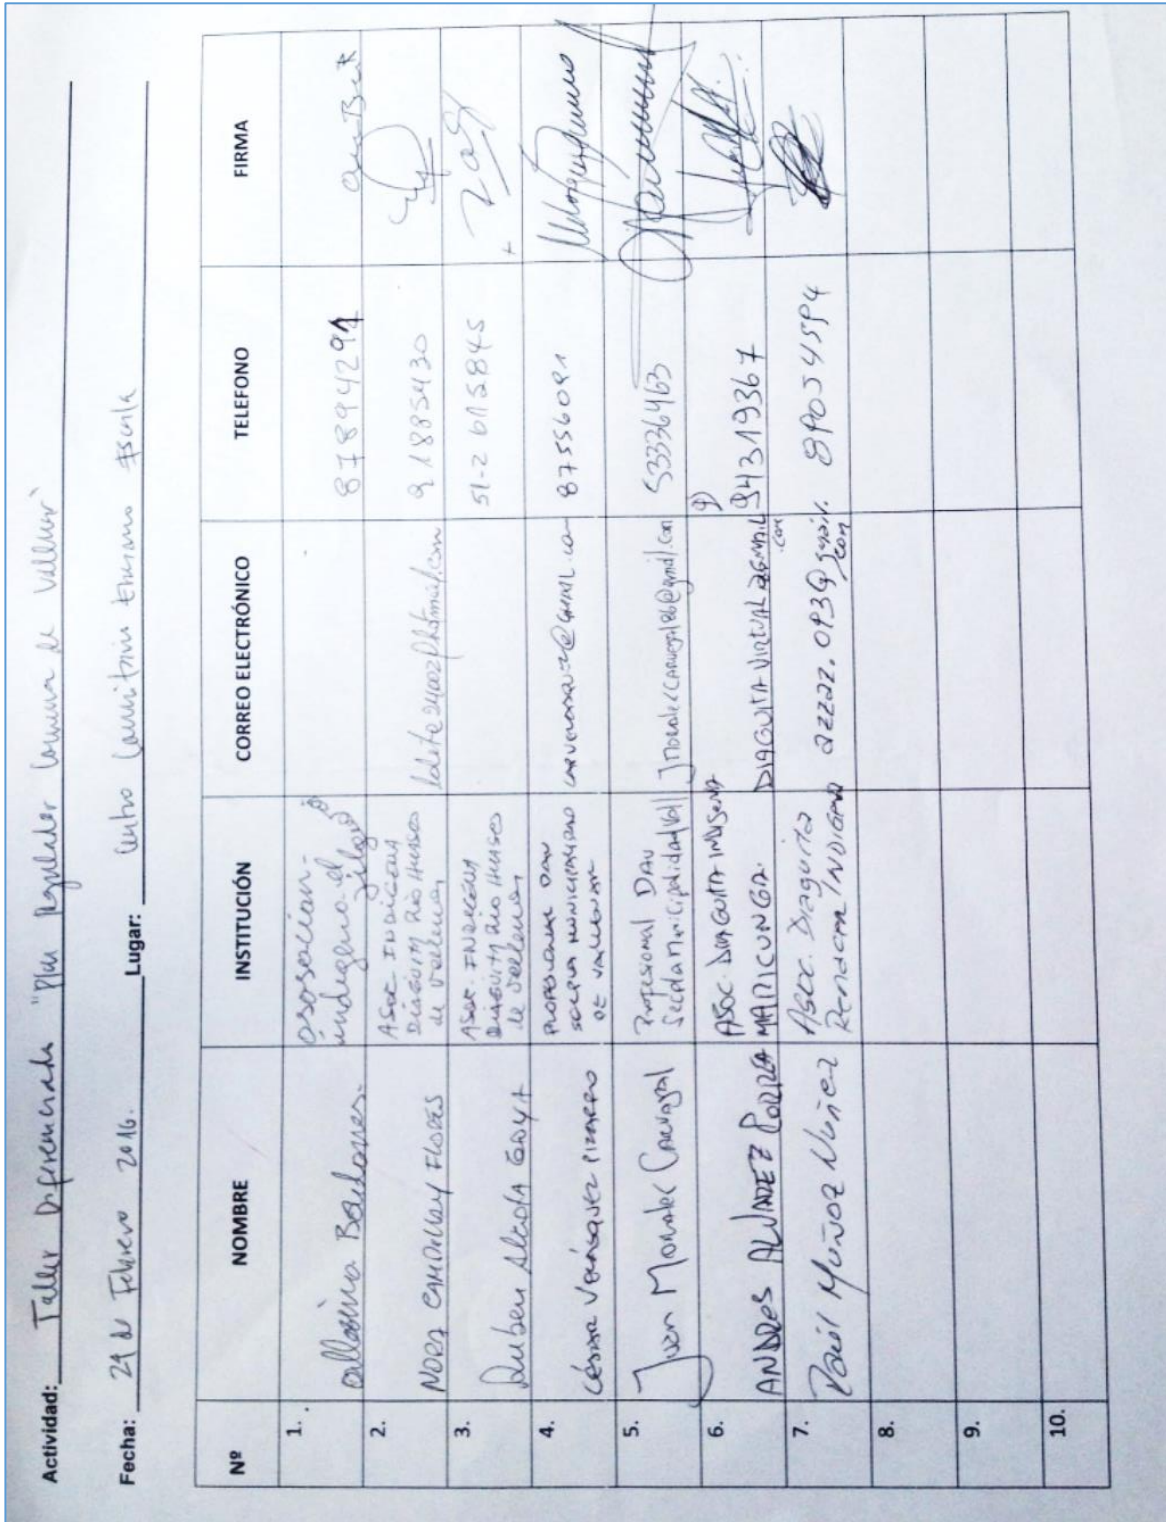 Actividad: Taller Diferenciado "Plan Regulador Comuna de Vallenar"
Fecha: 29 de Febrero 2016. Lugar: Centro Comunitario
Nº NOMBRE INSTITUCIÓN CORREO ELECTRÓNICO TELEFONO FIRMA
1. asosocian- indigena el 87894291
2. NORA CAMPILLAY FLORES ASOC. INDIGENA DIAGUITA RIO HUASCO de Vallenar, 91885430
3. Ruben ASOC. INDIGENA DIAGUITA RIO HUASCO de Vallenar, 51-2 615845
4. CÉSAR VENÁSQUEZ PIZARRO PROFESIONAL DAU SECPLA MUNICIPALIDAD DE VALLENAR 87556091
5. Juan Morales Carvajal Profesional DAU Secpla Municipalidad Vall JmoralesCarvajal86@gmail.com 53336463
6. ANDRES ALVAREZ ASOC. DIAGUITA INDIGENA MARICUNGA. DIAGUITAVIRTUAL@GMAIL .COM 9) 94319367
7. Raúl Muñoz Nuñez Asoc. Diaguita INDIGENA
8.
9.
10.